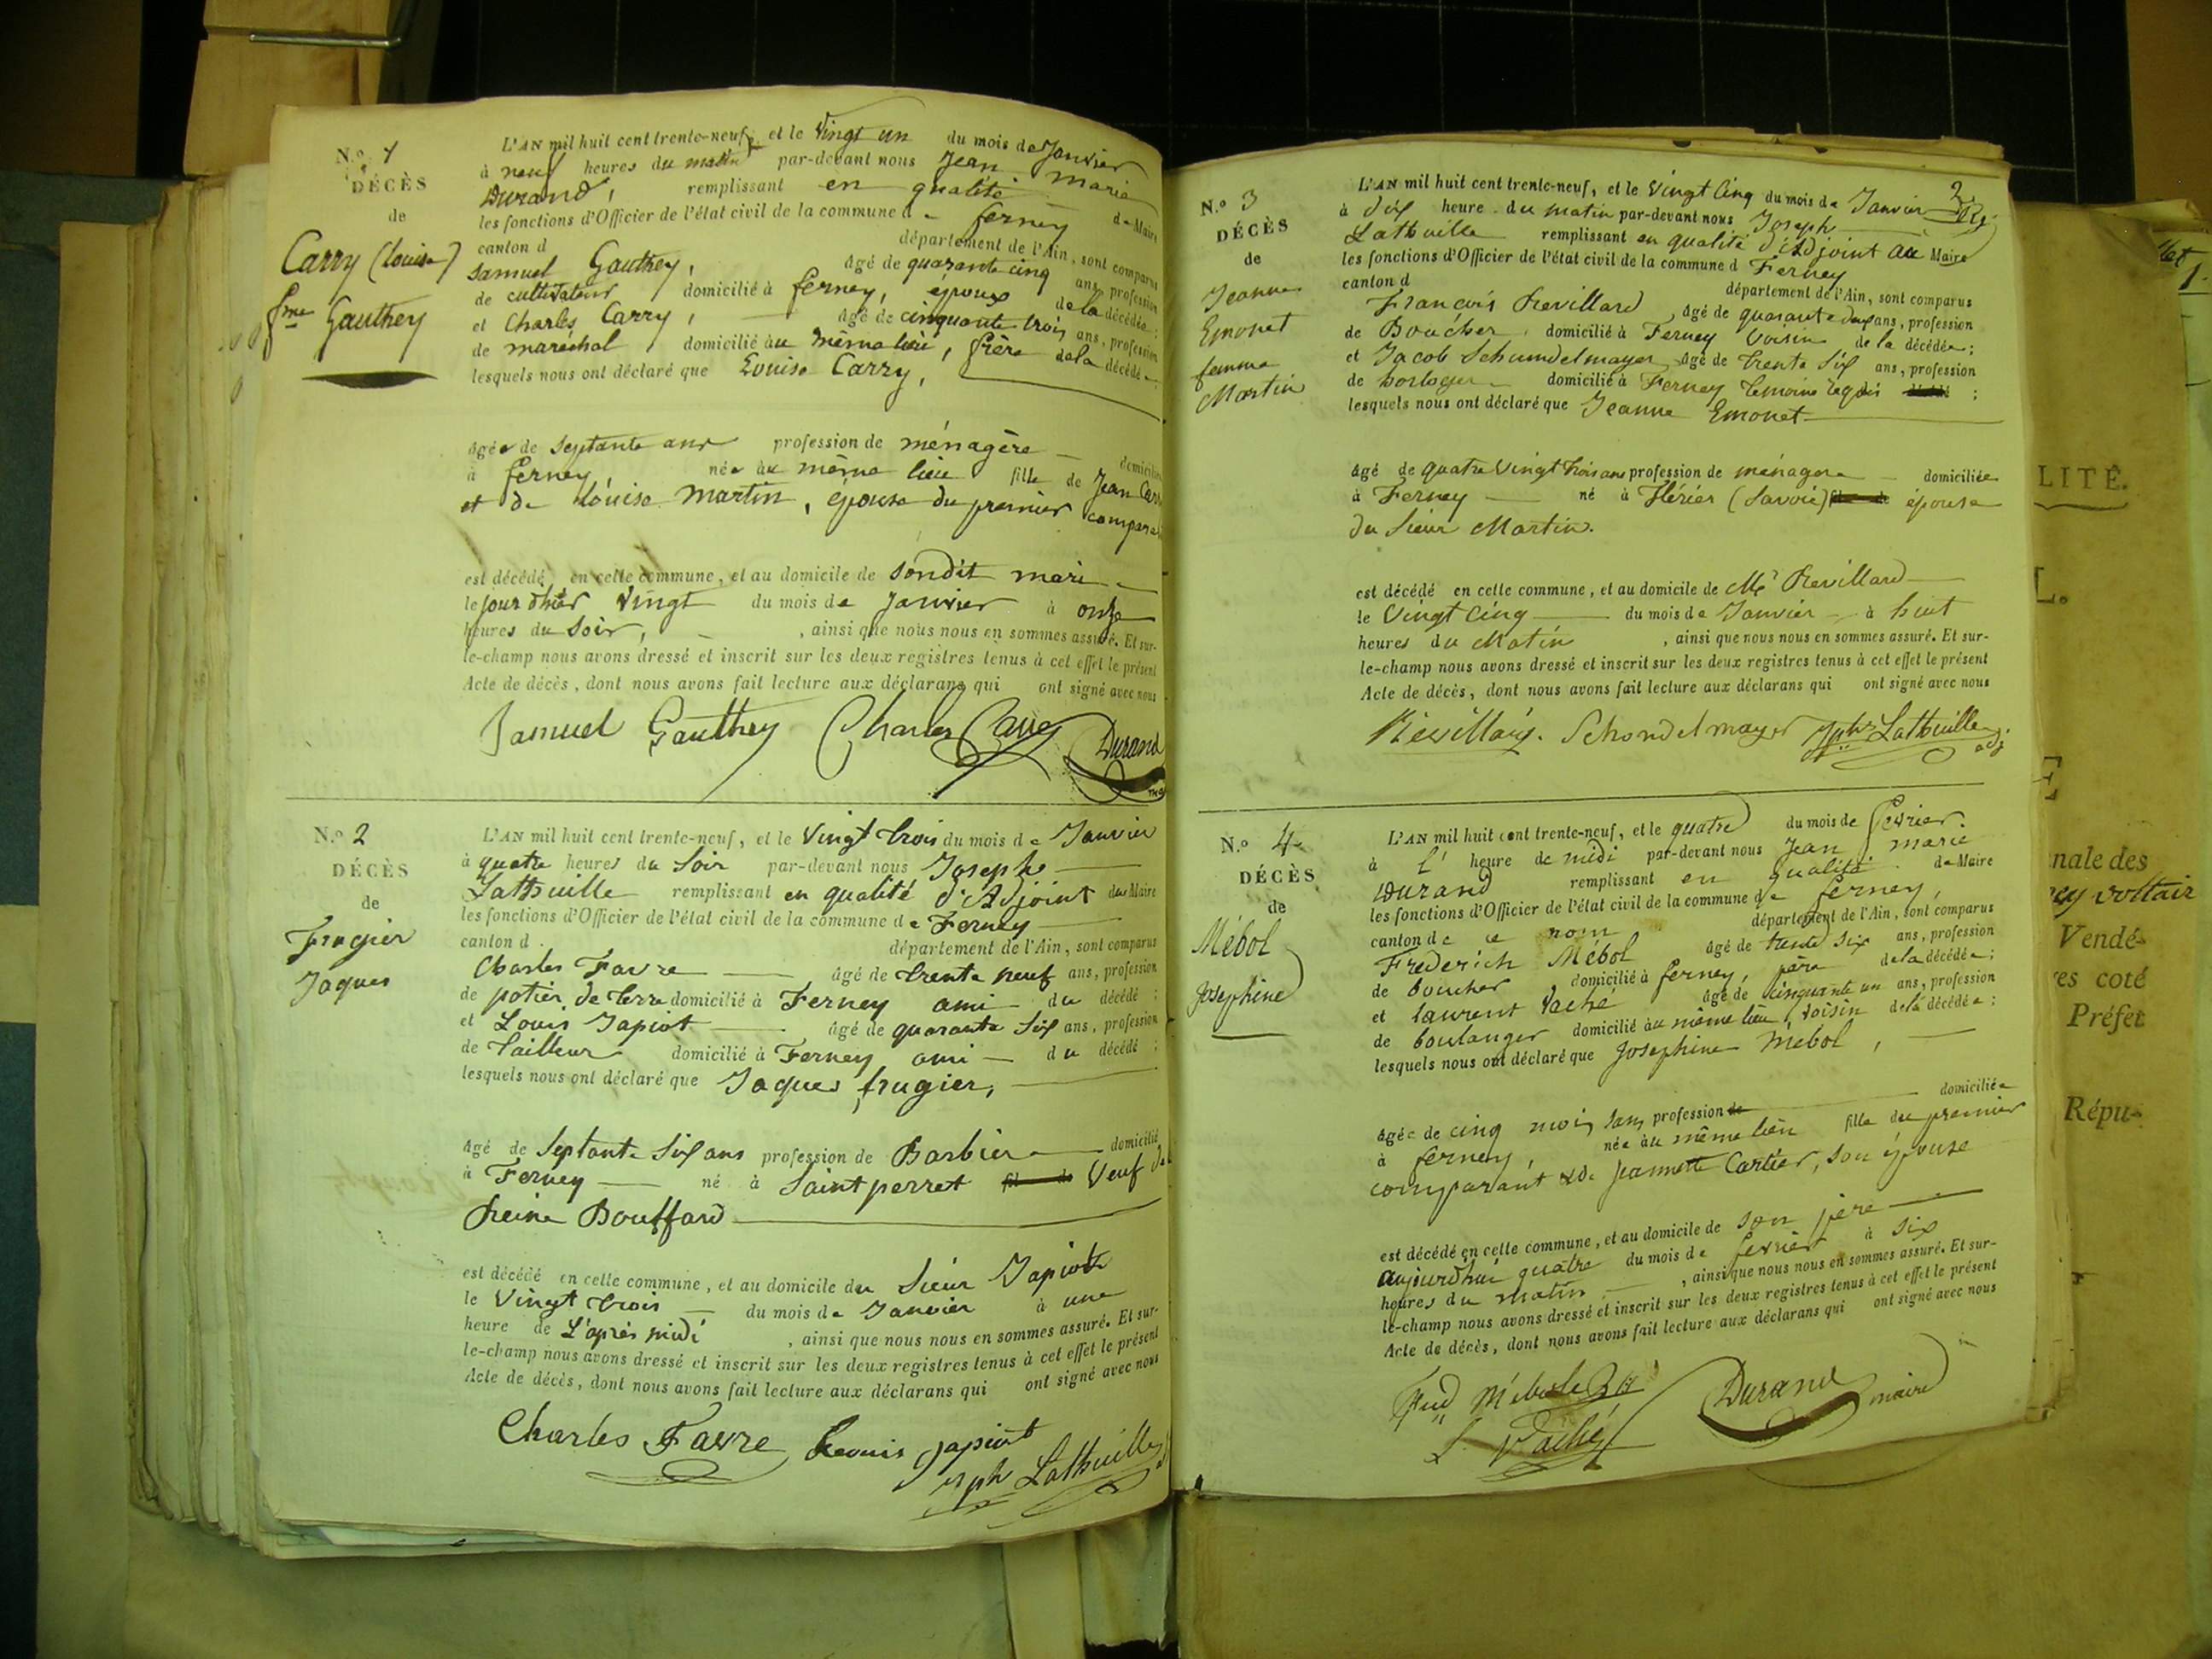 N.º 1
DÉCÈS
de
Carry (Louise)
fme Gauthey
L'AN mil huit cent trente-neuf, et le Vingt un du mois de Janvier
à neuf heures du matin par-devant nous Jean Marie
Durand, remplissant en qualité de Maire
les fonctions d'Officier de l'état civil de la commune d ferney
canton d département de l'Ain, sont comparus
Samuel Gauthey, âgé de quarante cinq ans, profession
de cultivateur domicilié à ferney, époux de la décédée;
et Charles Carry, âgé de cinquante trois ans, profession
de marechal domicilié au même lieu, frère de la décédée;
lesquels nous ont déclaré que Louise Carry,
âgée de septante ans profession de ménagère domiciliée
à ferney née au même lieu fille de Jean Carry
et de Louise Martin, épouse du premier compara
est décédé en cette commune, et au domicile de sondit mari
le jour d'hier Vingt du mois de Janvier à onze
heures du Soir, , ainsi que nous nous en sommes assuré. Et sur-
le-champ nous avons dressé et inscrit sur les deux registres tenus à cet effet le présent
Acte de décès, dont nous avons fait lecture aux déclarans qui ont signé avec nous
Samuel Gauthey Charles Carry Durand
N.º 2
DÉCÈS
de
Frugier
Jaques
L'AN mil huit cent trente-neuf, et le Vingt trois du mois de Janvier
à quatre heures du Soir par-devant nous Joseph
Lathuille remplissant en qualité d'Adjoint du Maire
les fonctions d'Officier de l'état civil de la commune de Ferney
canton d département de l'Ain, sont comparus
Charles Favre âgé de trente neuf ans, profession
de potier de terre domicilié à Ferney ami du décédé;
et Louis Japiot âgé de quarante Six ans, profession
de tailleur domicilié à Ferney ami du décédé;
lesquels nous ont déclaré que Jaques frugier,
âgé de Septante Six ans profession de Barbier domicilié
à Ferney né à Saint perret fils de Veuf de
Reine Bouffard
est décédé en cette commune, et au domicile du Sieur Japiot
le Vingt trois du mois de Janvier à une
heure de L'après midi , ainsi que nous nous en sommes assuré. Et sur-
le-champ nous avons dressé et inscrit sur les deux registres tenus à cet effet le présent
Acte de décès, dont nous avons fait lecture aux déclarans qui ont signé avec nous
Charles Favre Louis Japiot Jph Lathuille
2
N.º 3
DÉCÈS
de
Jeanne
Emonet
femme
Martin
L'AN mil huit cent trente-neuf, et le Vingt Cinq du mois de Janvier
à dix heure du matin par-devant nous Joseph
Lathuille remplissant en qualité d'Adjoint au Maire
les fonctions d'Officier de l'état civil de la commune d Ferney
canton d département de l'Ain, sont comparus
François Revillard âgé de quarante deux ans, profession
de Boucher domicilié à Ferney Voisin de la décédée;
et Jacob Schumdelmayer âgé de trente Six ans, profession
de horloger domicilié à Ferney témoins requis décédé;
lesquels nous ont déclaré que Jeanne Emonet
âgé de quatre Vingt trois ans profession de ménagere domiciliée
à Ferney né à Flérier (Savoie) fils de épouse
du Sieur Martin.
est décédé en cette commune, et au domicile de Mr Revillard
le Vingt Cinq du mois de Janvier à huit
heures du Matin , ainsi que nous nous en sommes assuré. Et sur-
le-champ nous avons dressé et inscrit sur les deux registres tenus à cet effet le présent
Acte de décès, dont nous avons fait lecture aux déclarans qui ont signé avec nous
Revillard. Schondelmayer Jph Lathuille adj
N.º 4
DÉCÈS
de
Mébol
Josephine
L'AN mil huit cent trente-neuf, et le quatre du mois de fevrier
à l' heure de midi par-devant nous Jean Marie
Durand remplissant en qualité de Maire
les fonctions d'Officier de l'état civil de la commune de ferney,
canton de ce nom département de l'Ain, sont comparus
Frederich Mébol âgé de trente Six ans, profession
de boucher domicilié à ferney, père de la décédée;
et laurent Vaché âgé de cinquante un ans, profession
de boulanger domicilié au même lieu, voisin de la décédée;
lesquels nous ont déclaré que Josephine Mebol,
âgée de cinq mois, sans profession de domiciliée
à ferney, née au même lieu fille du premier
comparant & de Jeannette Cartier, son épouse
est décédé en cette commune, et au domicile de son père
aujourd'hui quatre du mois de fevrier à six
heures du matin , ainsi que nous nous en sommes assuré. Et sur-
le-champ nous avons dressé et inscrit sur les deux registres tenus à cet effet le présent
Acte de décès, dont nous avons fait lecture aux déclarans qui ont signé avec nous
Durand maire
L. Vaché
1.
LITÉ.
L.
E
nale des
ey voltair
Vendé-
res coté
Préfet
Répu-